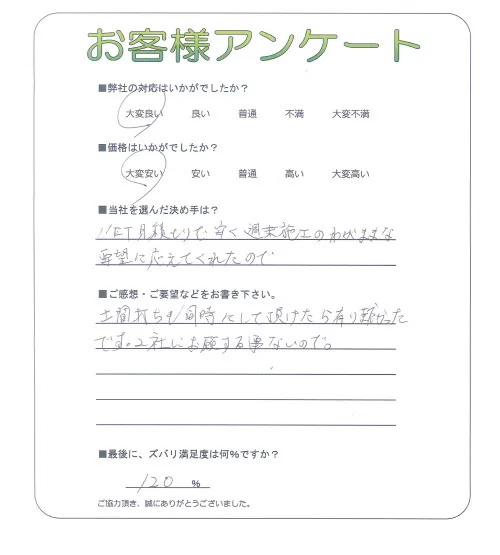 お客様アンケート
■弊社の対応はいかがでしたか？
大変良い 良い 普通 不満 大変不満
■価格はいかがでしたか？
大変安い 安い 普通 高い 大変高い
■当社を選んだ決め手は？
見積もりで安く週末施工のわがままな
要望に応えてくれたので
■ご感想・ご要望などをお書き下さい。
土間打ちも同時にして頂けたら有り難かった
です。2社にお願する事ないので。
■最後に、ズバリ満足度は何％ですか？
120 %
ご協力頂き、誠にありがとうございました。